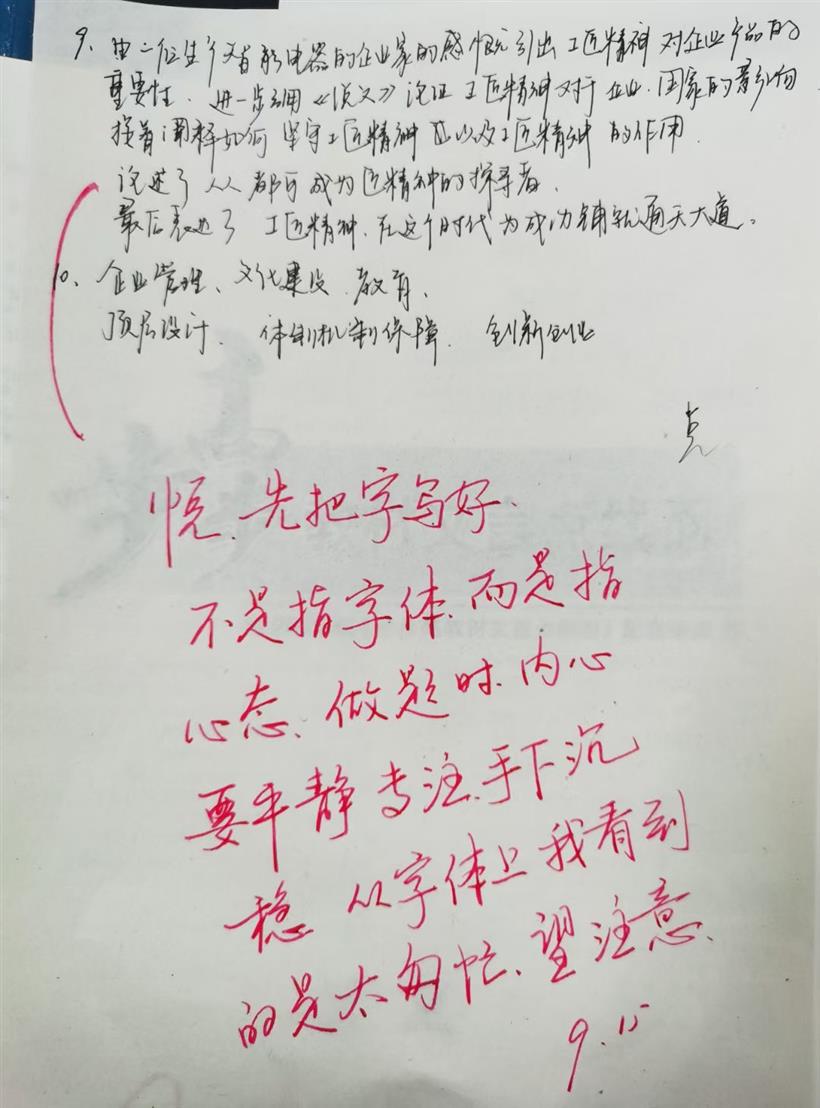 9、由二位生产智能电器的企业家的感慨引出工匠精神对企业产品的
重要性. 进一步引用《说文》论证工匠精神对于企业.国家的影响
接着阐释如何坚守工匠精神 以及工匠精神的作用.
论述了人人都可成为匠精神的探寻者.
最后表达了 工匠精神.在这个时代为成功铺就通天大道。
10、企业管理、文化建设、教育、
顶层设计. 体制机制保障. 创新创业
克
悦、先把字写好.
不是指字体.而是指
心态、做题时.内心
要平静专注.手下沉
稳 从字体上我看到
的是太匆忙、望注意、
9.15